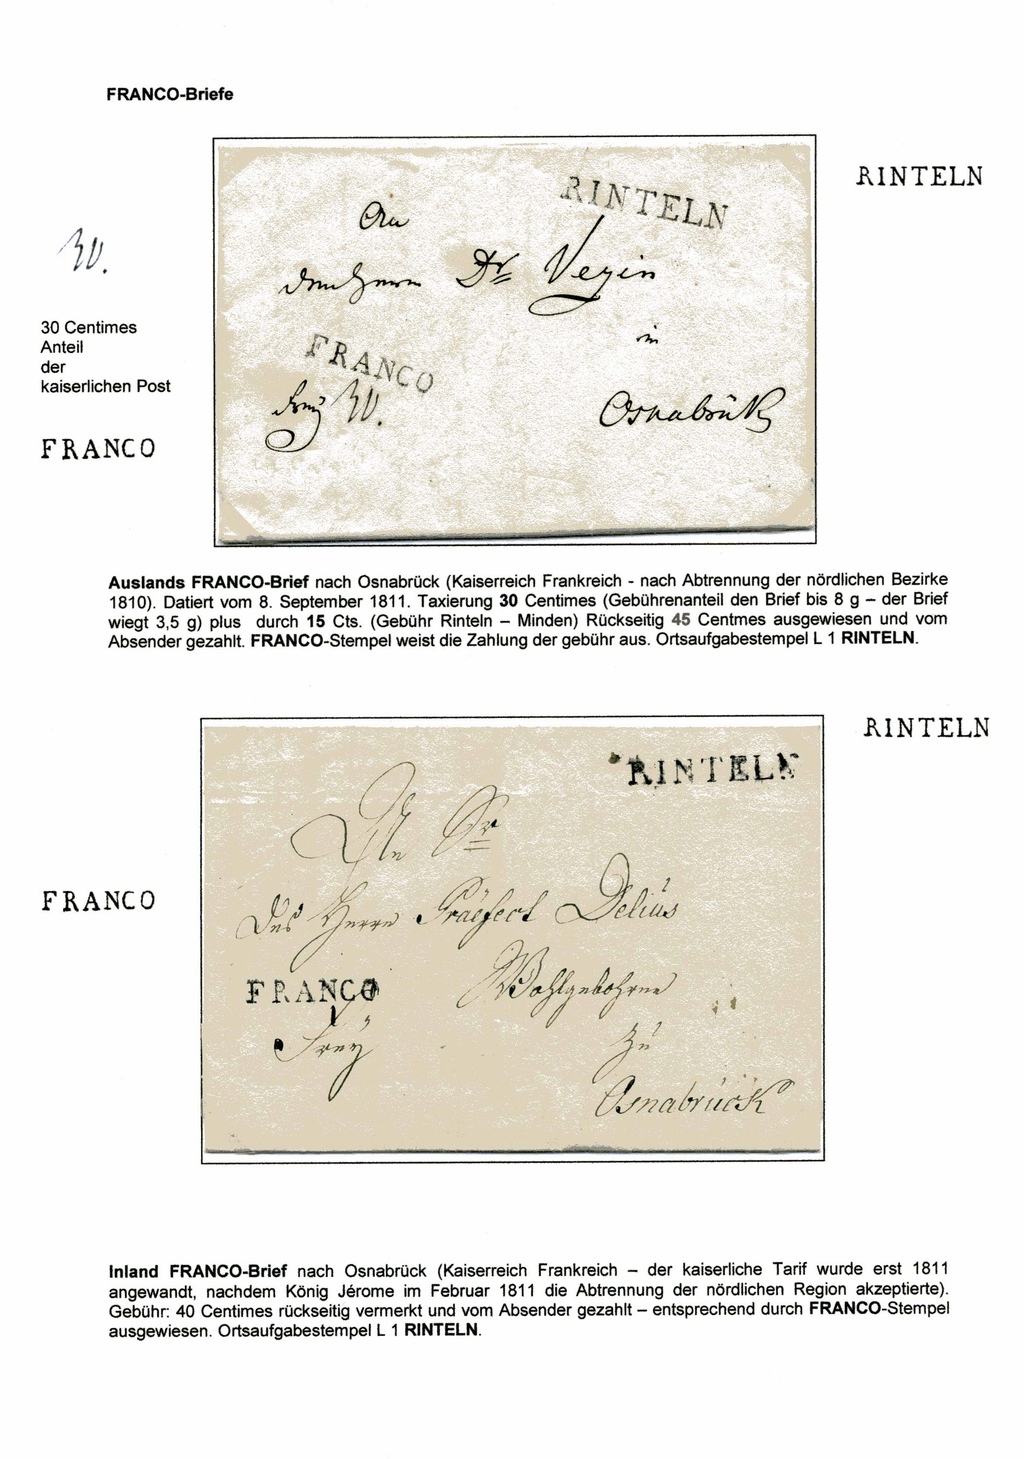 FRANCO-Briefe
RINTELN
RINTELN
An
dem Herrn Dr Vezin
in
30.
30 Centimes
Anteil
der
kaiserlichen Post
FRANCO
FRANCO
frey 30.
Osnabrück
Auslands FRANCO-Brief nach Osnabrück (Kaiserreich Frankreich - nach Abtrennung der nördlichen Bezirke
1810). Datiert vom 8. September 1811. Taxierung 30 Centimes (Gebührenanteil den Brief bis 8 g – der Brief
wiegt 3,5 g) plus durch 15 Cts. (Gebühr Rinteln – Minden) Rückseitig 45 Centmes ausgewiesen und vom
Absender gezahlt. FRANCO-Stempel weist die Zahlung der gebühr aus. Ortsaufgabestempel L 1 RINTELN.
RINTELN
RINTELN
An Sr
Des Herrn Präefect Delius
FRANCO
FRANCO
Wohlgebohrne
Frey
zu
Osnabrück
Inland FRANCO-Brief nach Osnabrück (Kaiserreich Frankreich – der kaiserliche Tarif wurde erst 1811
angewandt, nachdem König Jérome im Februar 1811 die Abtrennung der nördlichen Region akzeptierte).
Gebühr: 40 Centimes rückseitig vermerkt und vom Absender gezahlt – entsprechend durch FRANCO-Stempel
ausgewiesen. Ortsaufgabestempel L 1 RINTELN.